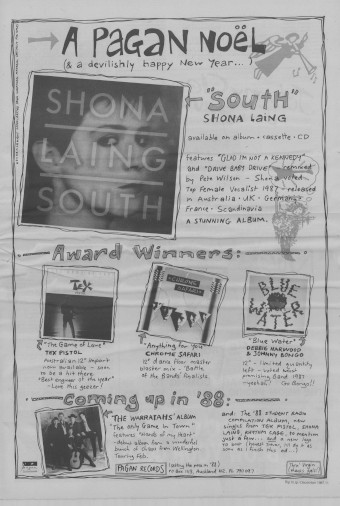 A PAGAN NOËL
(& a devilishly happy New Year...)
SHONA
LAING
SOUTH
"SOUTH"
SHONA LAING
available on album - cassette - CD
features "GLAD I'M NOT A KENNEDY"
and "DRIVE BABY DRIVE" - remixed
by Pete Wilson - Shona voted
Top Female Vocalist 1987 - released
in Australia - UK - Germany -
France - Scandinavia
A STUNNING ALBUM.
Award Winners:
TEX
"The Game of Love"
TEX PISTOL
Australian 12" import
now available - soon
to be a hit there.
"Best engineer of the year"
Love this geezer!
"Anything for you"
CHROME SAFARI
12" dance floor master
blaster mix - "Battle
of the Bands" finalists.
BLUE
WATER
"Blue Water"
DEBBIE HARWOOD
12" - limited quantity
left - voted most
promising Band 1987
Coming up in '88:
"THE WARRATAHS" ALBUM
"The Only Game in Town"
features "Hands of my Heart"
- debut album from a wonderful
bunch of blokes from Wellington.
Touring Feb.
and: The '88 STUDENT RADIO
COMPILATION ALBUM, new
singles from TEX PISTOL, SHONA
LAING, RHYTHM CAGE, to mention
just a few... and a new logo
PAGAN RECORDS